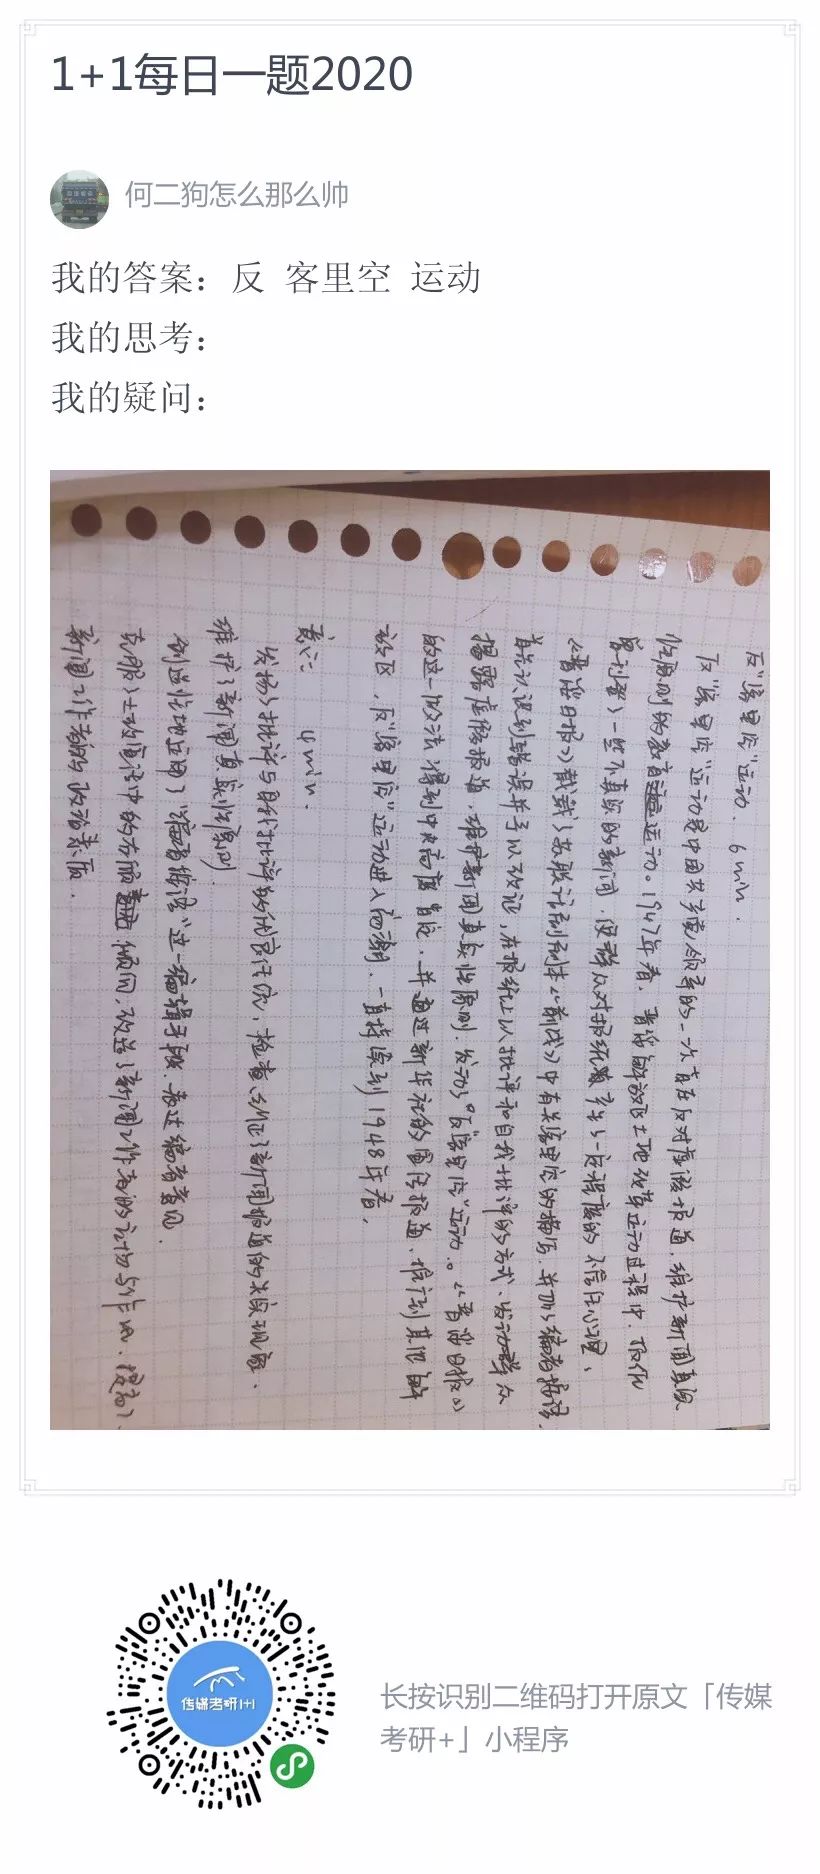 1+1每日一题2020
何二狗怎么那么帅
我的答案：反 客里空 运动
我的思考：
我的疑问：
反"客里空"运动. 6min.
反"客里空"运动是中国共产党领导的一次旨在反对虚假报道、维护新闻真实
性原则的教育运动。1947年春，晋绥解放区土地改革运动过程中，
客刊登了一些不真实的新闻，使群众对报纸产生了一定程度的不信任心理，
《晋绥日报》载了苏联话剧剧本《前线》中有关客里空的描写，并加了编者按语，
认识到错误并予以改正，在报纸上以批评和自我批评的方式、发动群众
揭露虚假报道，维护新闻真实性原则，发动了"反客里空"运动。《晋绥日报》
的这一做法得到中央高度肯定，并通过新华社的宣传报道，推广到其他解
放区，反"客里空"运动进入高潮，一直持续到1948年春，
意义： 4min.
发扬了批评与自我批评的优良作风，检查纠正了新闻报道的失实现象，
维护了新闻真实性原则.
创造性地运用了"编者按语"这一编辑手段，表达编者意见.
克服了土改宣传中的右倾倾向，改进了新闻工作者的作风，提高了
新闻工作者的政治素质.
传媒考研1+1
长按识别二维码打开原文「传媒
考研+」小程序